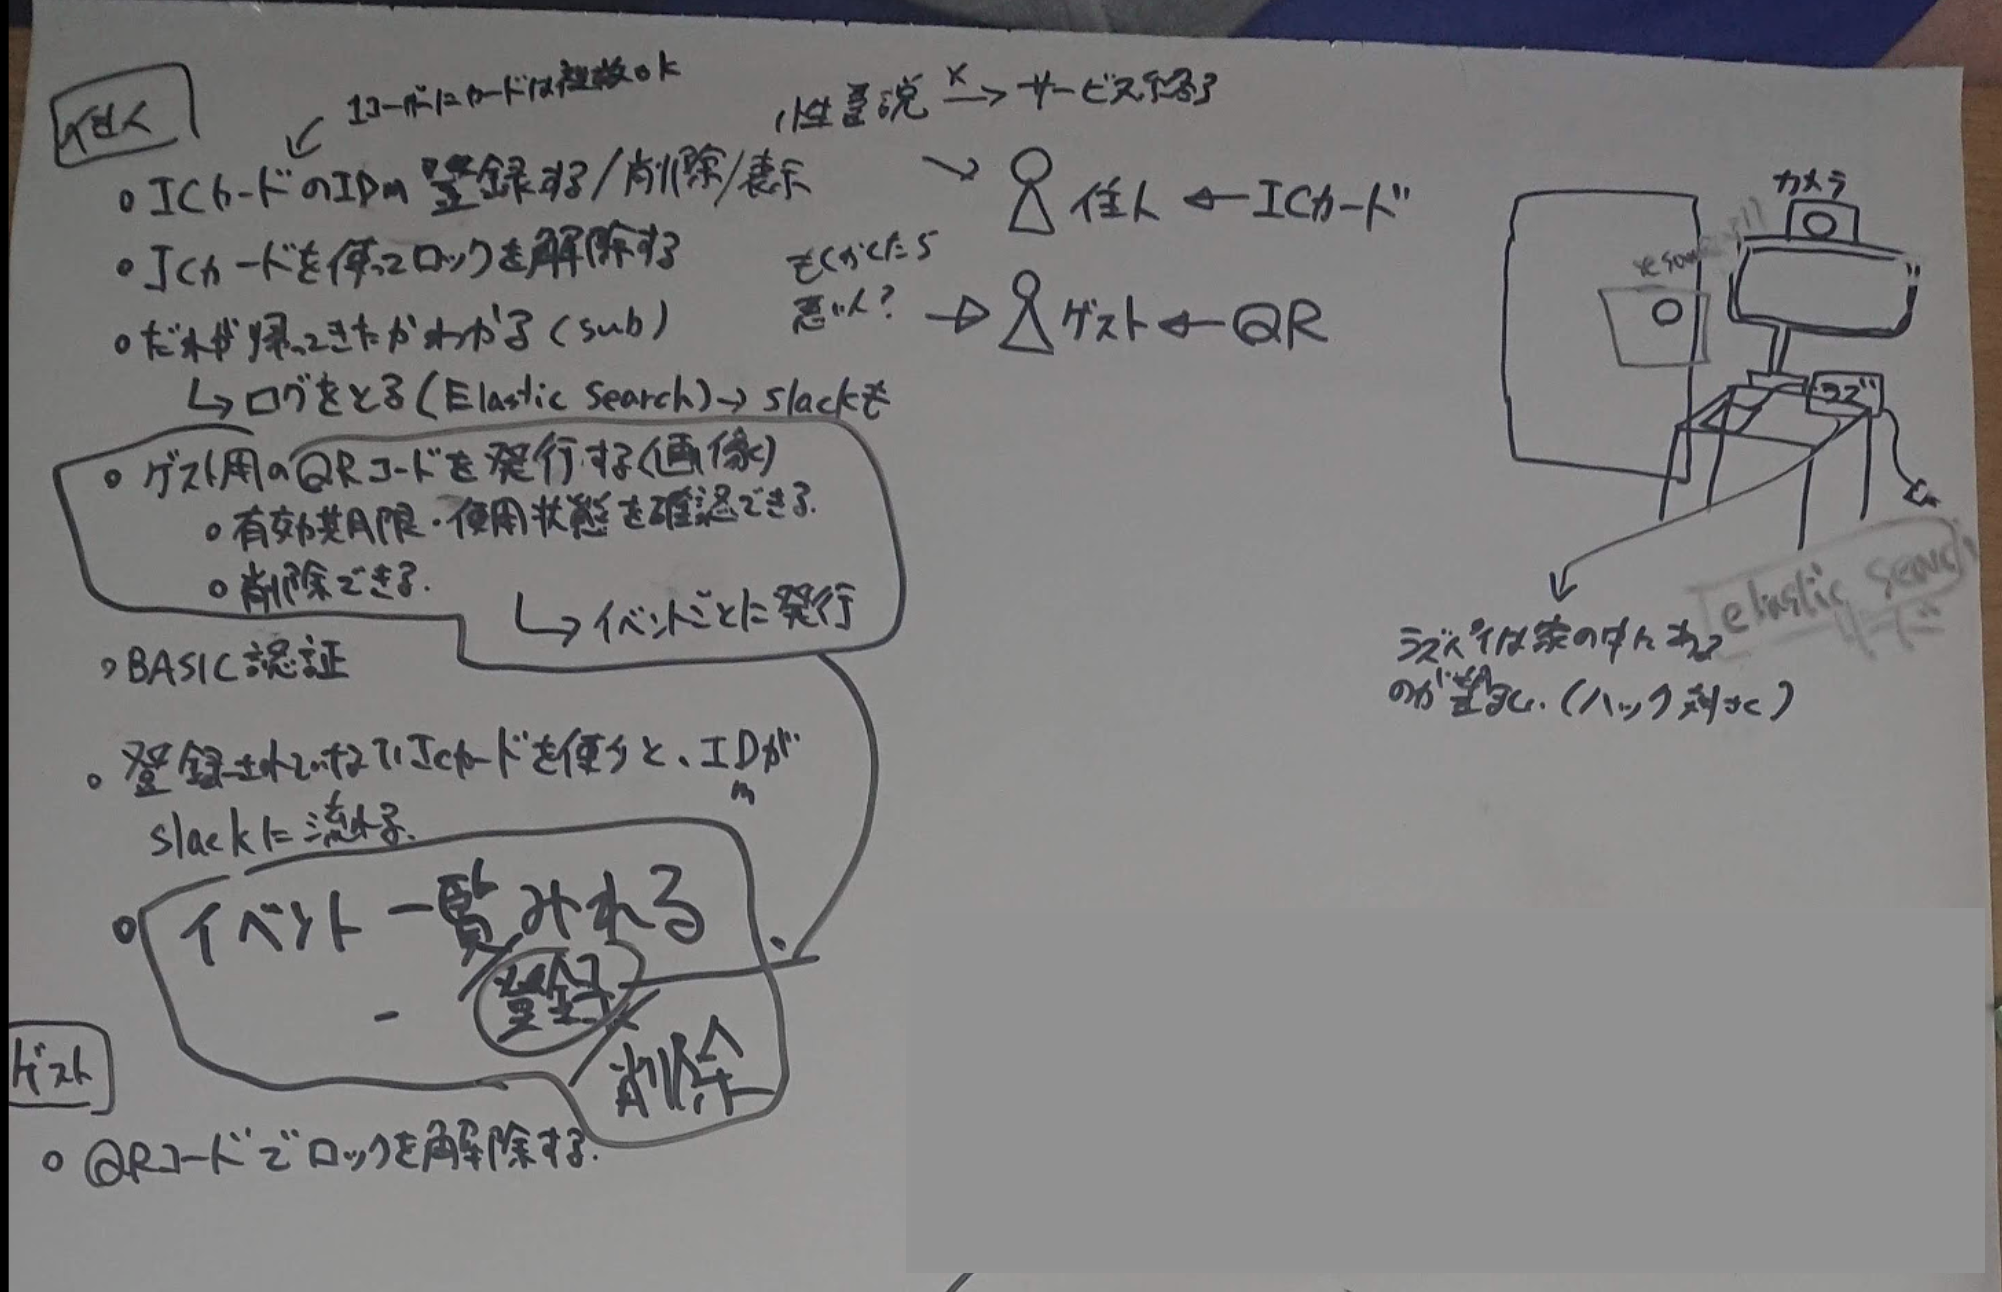 住人
1ユーザーにカードは複数ok
ICカードのIDm 登録する/削除/表示
ICカードを使ってロックを解除する
だれが帰ってきたかわかる(sub)
ログをとる(Elastic Search)→slackも
ゲスト用のQRコードを発行する(画像)
有効期限・使用状態を確認できる.
削除できる.
イベントごとに発行
BASIC認証
登録されていないICカードを使うと、IDmが
slackに流れる.
イベント一覧みれる
- 登録
削除
ゲスト
QRコードでロックを解除する.
性善説 × → サービス
住人 ← ICカード
もしかしたら
悪い人?
→ ゲスト ← QR
カメラ
ラズ
elastic search
サーバ
ラズパイは家の中にある
のが望ましい.(ハック対策)